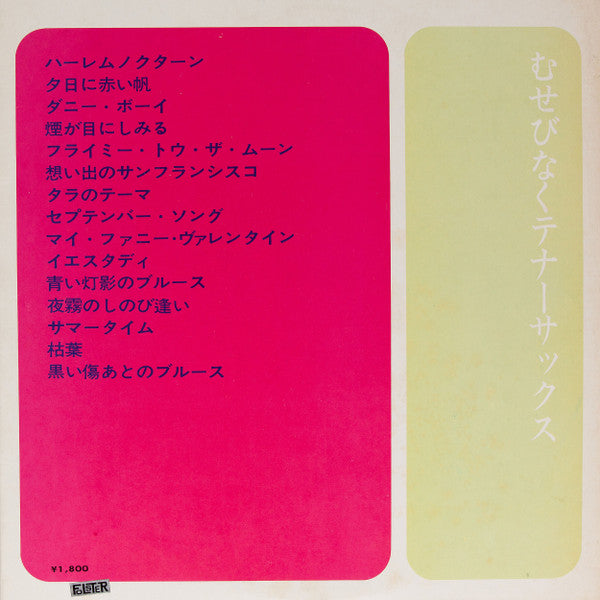 ハーレムノクターン
夕日に赤い帆
ダニー・ボーイ
煙が目にしみる
フライミー・トウ・ザ・ムーン
想い出のサンフランシスコ
タラのテーマ
セプテンバー・ソング
マイ・ファニー・ヴァレンタイン
イエスタディ
青い灯影のブルース
夜霧のしのび逢い
サマータイム
枯葉
黒い傷あとのブルース
むせびなくテナーサックス
¥1,800